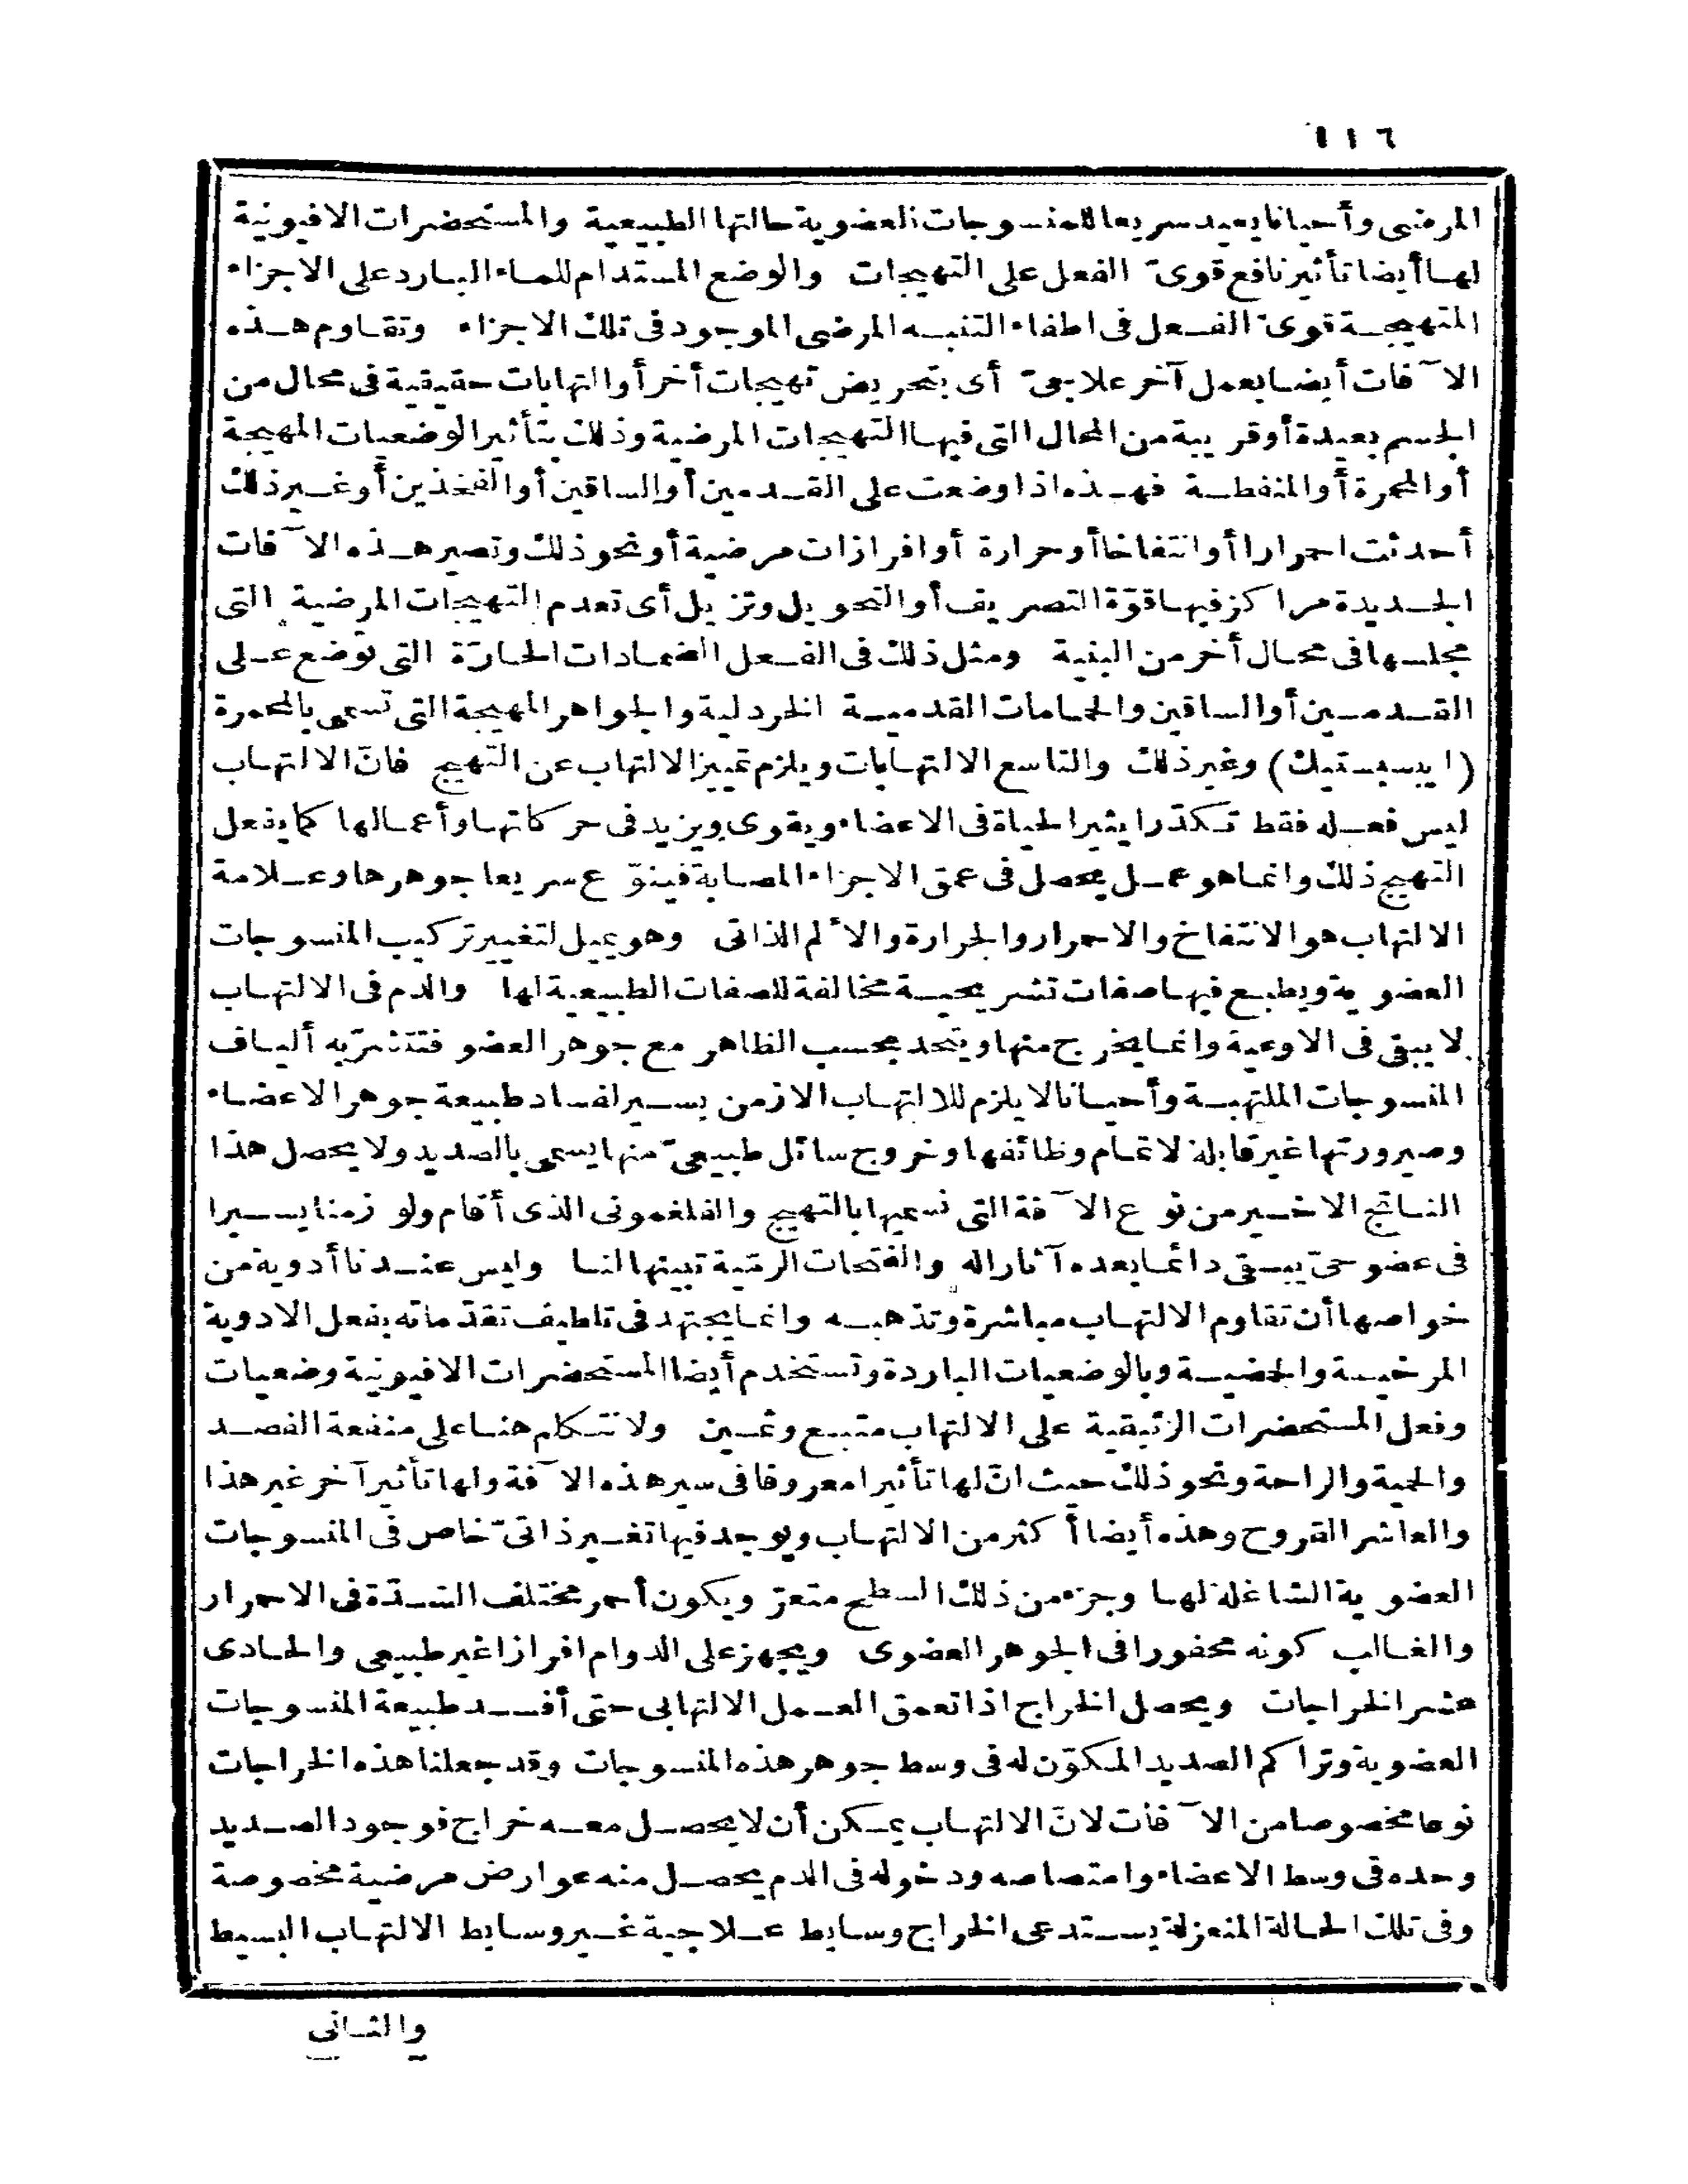 ١١٦
المرضى وأحيانا يعيد سريعا للمنسوجات العضوية حالتها الطبيعية والمستحضرات الافيونية
لها أيضا تأثير نافع قوىّ الفعل على التهيجات والوضع المستدام للماء البارد على الاجزاء
المتهيجة قوىّ الفعل فى اطفاء التنبه المرضى الموجود فى تلك الاجزاء وتقاوم هذه
الآفات أيضا بعمل آخر علاجىّ أى بتحريض تهيجات أخر أو التهابات حقيقية فى محال من
الجسم بعيدة أو قريبة من المحال التى فيها التهيجات المرضية وذلك بتأثير الوضعيات المهيجة
أو المحمرة أو المنفطة فهذه اذا وضعت على القدمين أو الساقين أو الفخذين أو غير ذلك
أحدثت احمرارا أو انتفاخا أو حرارة أو افرازات مرضية أو نحو ذلك وتصير هذه الآفات
الجديدة مراكز فيها قوّة التصريف أو التحويل وتزيل أى تعدم التهيجات المرضية التى
مجلسها فى محال أخر من البنية ومثل ذلك فى الفعل الضمادات الحارّة التى توضع على
القدمين أو الساقين والحمامات القدمية الخردلية والجواهر المهيجة التى تسمى بالمحمرة
(ايبسبستيك) وغير ذلك والتاسع الالتهابات ويلزم تمييز الالتهاب عن التهيج فانّ الالتهاب
ليس فعله فقط تكدّرا يثير الحياة فى الاعضاء ويقوى ويزيد فى حركاتها وأعمالها كما يفعل
التهيج ذلك وانما هو عمل يحصل فى عمق الاجزاء المصابة فينوّع سريعا جوهرها وعلامة
الالتهاب هو الانتفاخ والاحمرار والحرارة والألم الذاتى وهو يميل لتغيير تركيب المنسوجات
العضوية ويطبع فيها صفات تشريحية مخالفة للصفات الطبيعية لها والدم فى الالتهاب
لا يبقى فى الاوعية وانما يخرج منها ويتحد بحسب الظاهر مع جوهر العضو فتتشرّبه ألياف
المنسوجات الملتهبة وأحيانا لا يلزم للالتهاب الا زمن يسير لفساد طبيعة جوهر الاعضاء
وصيرورتها غير قابلة لاتمام وظائفها وخروج سائل طبيعىّ منها يسمى بالصديد ولا يحصل هذا
الناتج الاخير من نوع الآفة التى نسميها بالتهيج والفلغمونى الذى أقام ولو زمنا يسيرا
فى عضو حىّ يبقى دائما بعده آثار له والفتحات الرمّية تبينها لنا وليس عندنا أدوية من
خواصها أن تقاوم الالتهاب مباشرة وتذهبه وانما يجتهد فى تلطيف تقدّماته بفعل الادوية
المرخية والحمضية وبالوضعيات الباردة وتستخدم أيضا المستحضرات الافيونية وضعيات
وفعل المستحضرات الزئبقية على الالتهاب متبع وثمين ولا نتكلم هنا على منفعة الفصد
والحمية والراحة ونحو ذلك حيث انّ لها تأثيرا معروفا فى سير هذه الآفة ولها تأثير آخر غير هذا
والعاشر القروح وهذه أيضا أكثر من الالتهاب ويوجد فيها تغير ذاتىّ خاص فى المنسوجات
العضوية الشاغلة لها وجزء من ذلك السطح متعرّ ويكون أحمر مختلف الشدّة فى الاحمرار
والغالب كونه محفورا فى الجوهر العضوى ويجهز على الدوام افرازا غير طبيعى والحادى
عشر الخراجات ويحصل الخراج اذا تعمق العمل الالتهابى حتى أفسد طبيعة المنسوجات
العضوية وتراكم الصديد المكوّن له فى وسط جوهر هذه المنسوجات وقد جعلنا هذه الخراجات
نوعا مخصوصا من الآفات لانّ الالتهاب يمكن أن لا يحصل معه خراج فوجود الصديد
وحده فى وسط الاعضاء وامتصاصه ودخوله فى الدم يحصل منه عوارض مرضية مخصوصة
وفى تلك الحالة المنعزلة يستدعى الخراج وسايط علاجية غير وسايط الالتهاب البسيط
والثانى